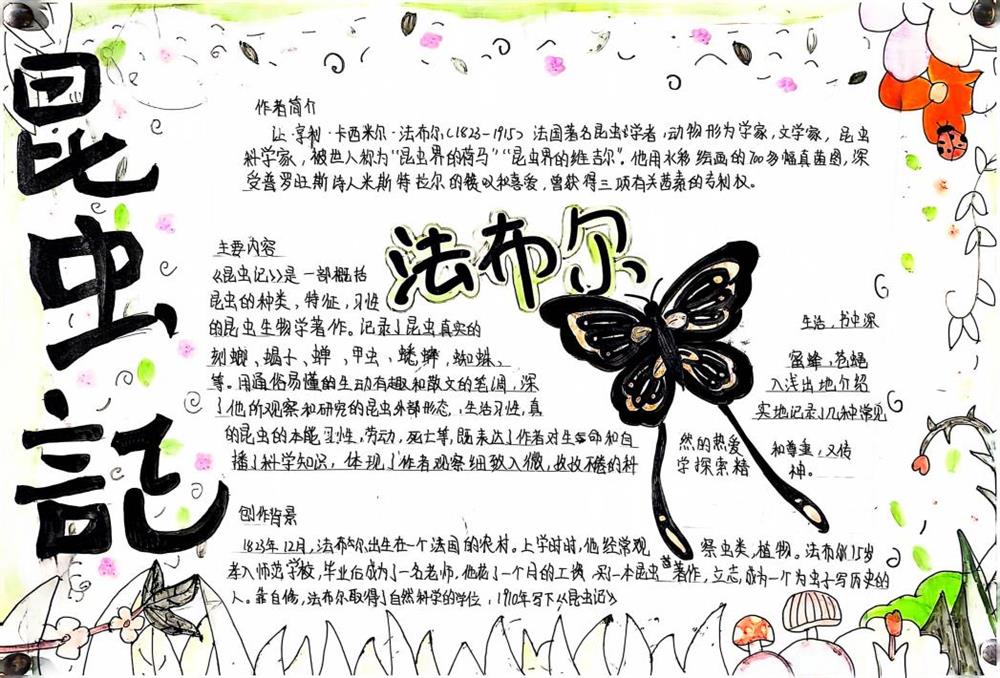 昆虫記
作者简介
让·亨利·卡西米尔·法布尔(1823-1915) 法国著名昆虫学者,动物形为学家,文学家,昆虫
科学家,被世人称为"昆虫界的荷马""昆虫界的维吉尔"。他用水彩绘画的700多幅真菌图,深
受普罗旺斯诗人米斯特拉尔的赞叹和喜爱,曾获得三项有关茜素的专利权。
法布尔
主要内容
《昆虫记》是一部概括
昆虫的种类、特征、习性 生活,书中深
的昆虫生物学著作。记录了昆虫真实的
蜣螂、蝎子、蝉、甲虫、蟋蟀、蜘蛛、 蜜蜂,苍蝇
等。用通俗易懂的生动有趣和散文的笔调,深 入浅出地介绍
了他所观察和研究的昆虫外部形态,生活习性,真 实地记录了几种常见
的昆虫的本能、习性,劳动,死亡等,既表达了作者对生命和自 然的热爱 和尊重,又传
播了科学知识,体现了作者观察细致入微,孜孜不倦的科 学探索精 神。
创作背景
1823年12月,法布尔出生在一个法国的农村。上学时时,他经常观 察虫类,植物。法布尔15岁
考入师范学校,毕业后成为了一名老师,他花了一个月的工资 买了一本昆虫学著作,立志成为一个为虫子写历史的
人。靠自修,法布尔取得了自然科学的学位,1910年写下《昆虫记》